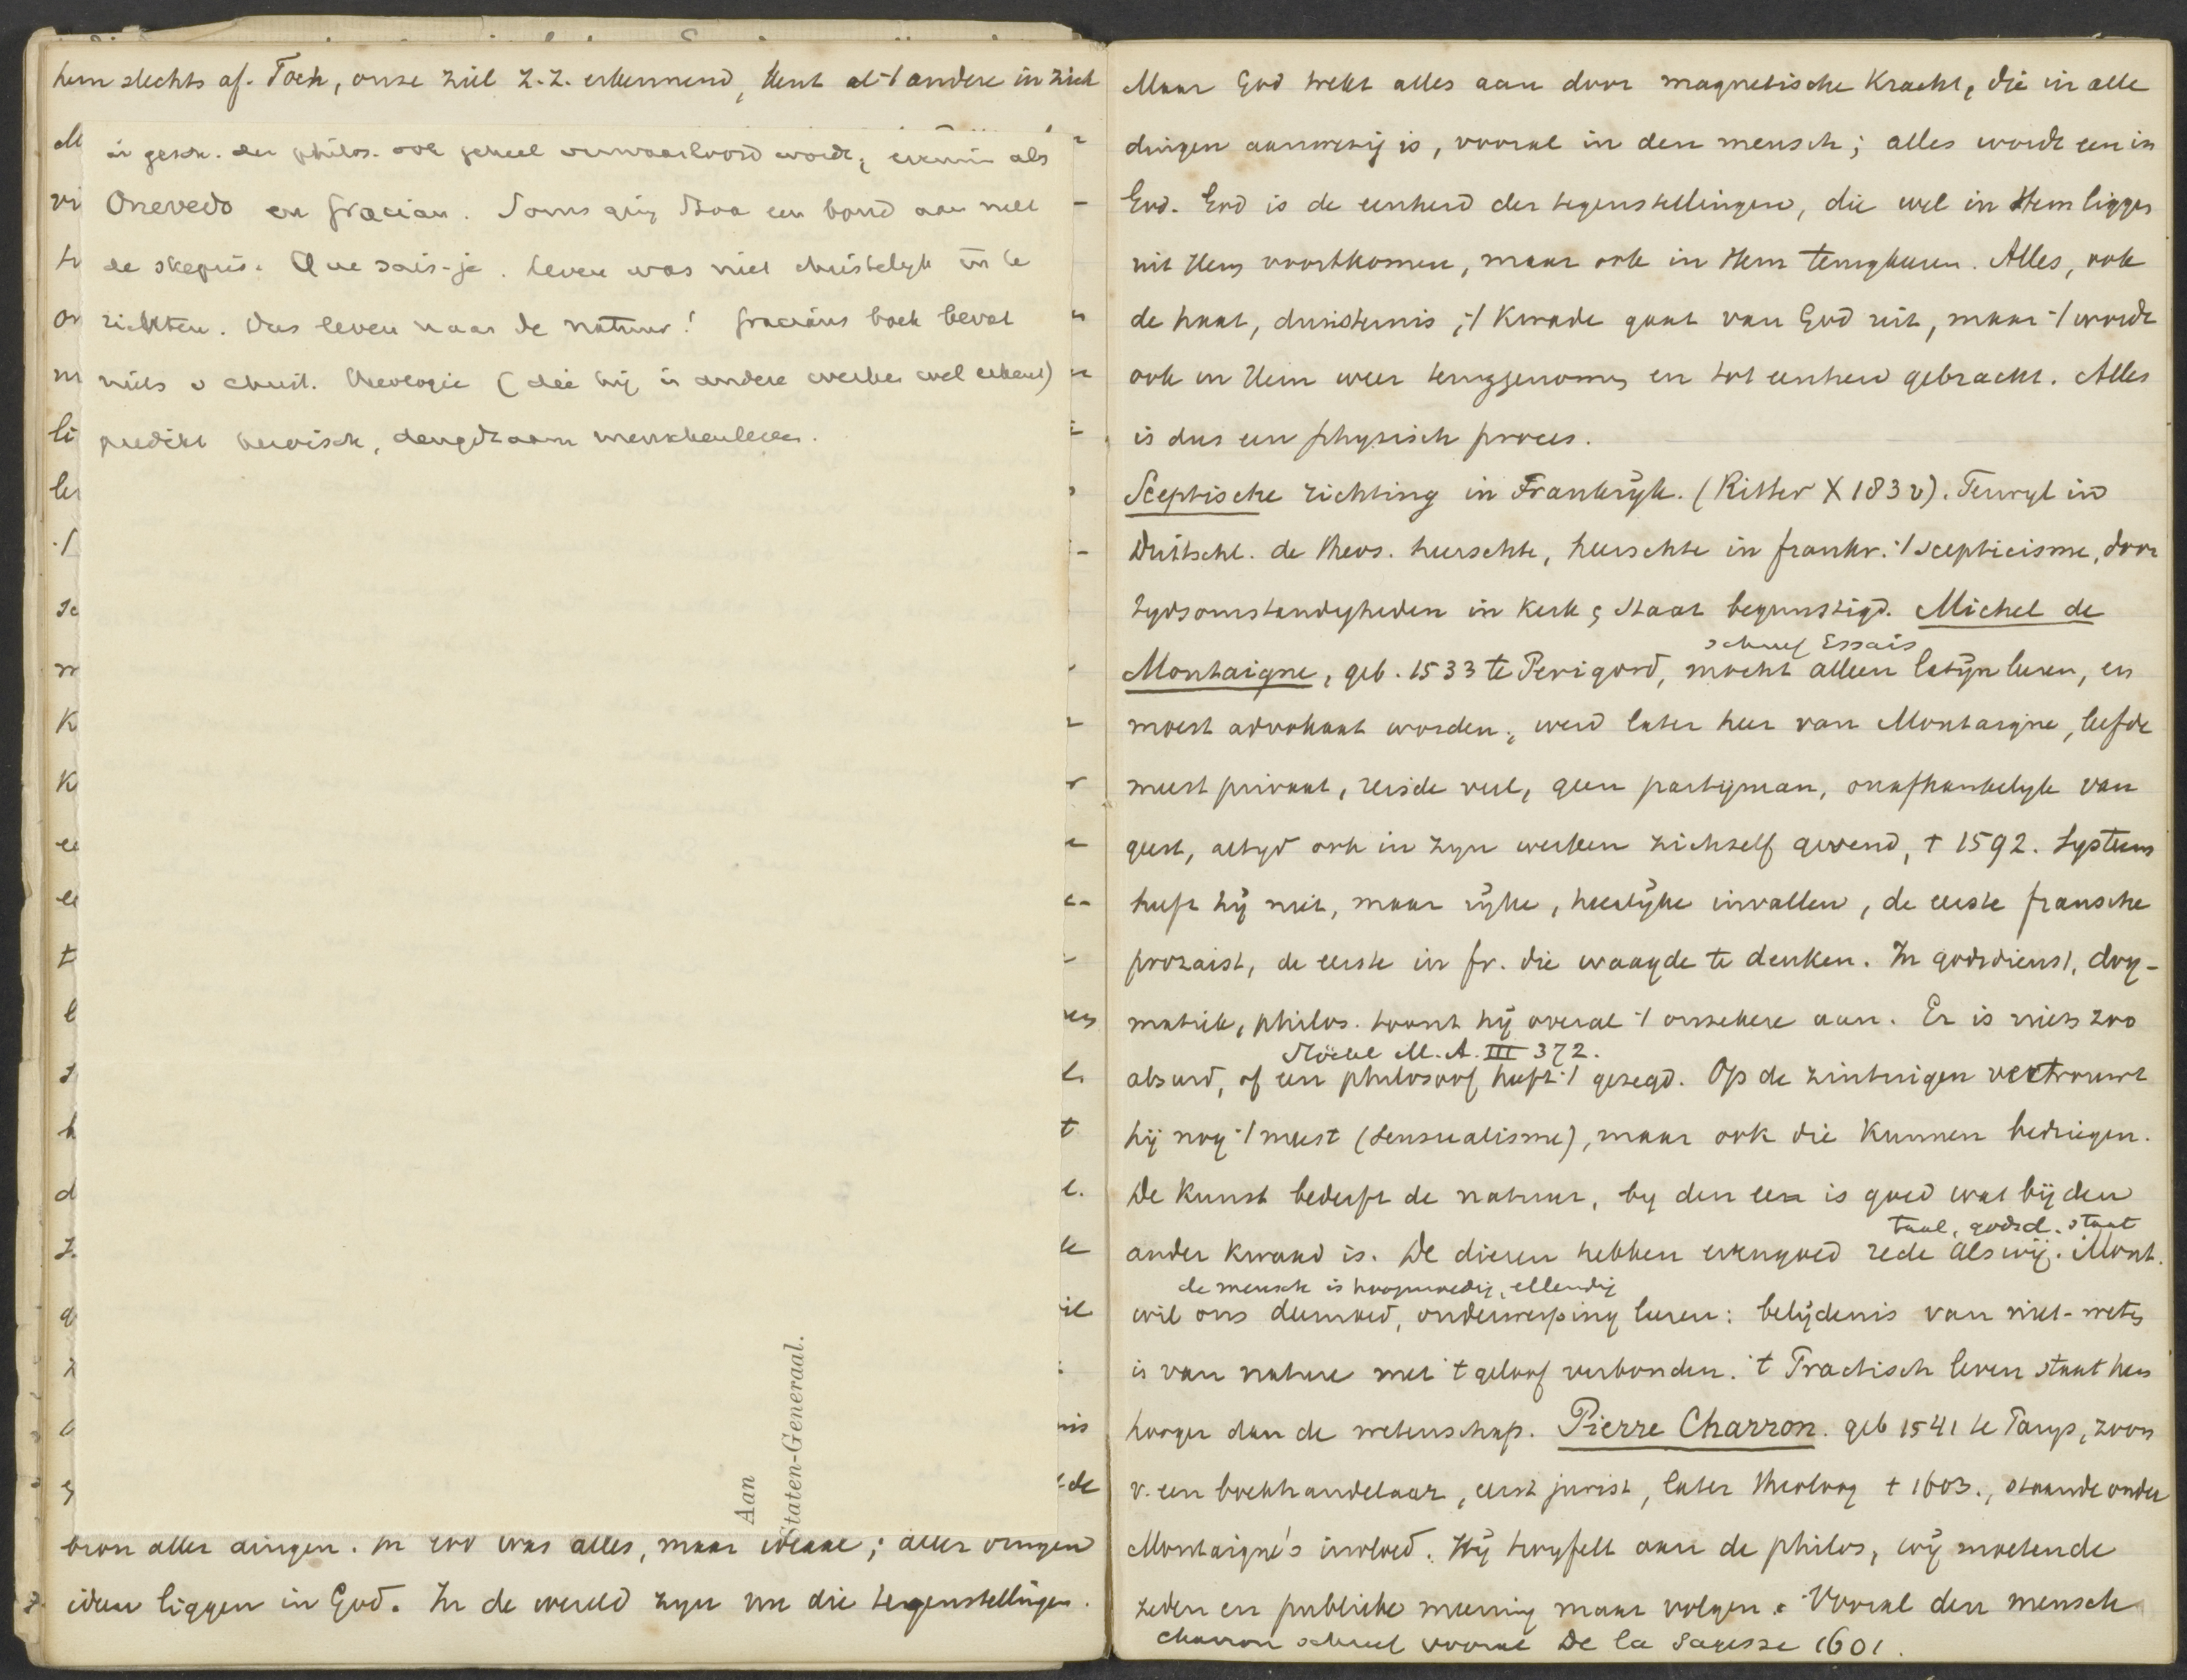 hem slechts af. Toch, onze ziel z.z. erkennend, kent al 't andere in zich
in gesch. der philos. ook geheel verwaarloosd wordt, evenmin als
Quevedo en Gracian. Soms ging Stoa een bond aan met
de skepsis. Que sais-je. Leven was niet christelyk in te
richten. Dus leven naar de natuur! Graciáns boek bevat
niets v christ. theologie (die hij in andere werken wel erkent)
predikt heroisch, deugdzaam menschenleven.
Aan
Staten-Generaal.
bron aller dingen. In God was alles, maar ideaal; aller dingen
ideen liggen in God. In de wereld zyn nu die tegenstellingen.
Maar God trekt alles aan door magnetische Kracht, die in alle
dingen aanwezig is, vooral in den mensch; alles wordt een in
God. God is de eenheid der tegenstellingen, die wel in Hem liggen
uit Hem voortkomen, maar ook in Hem terugkeeren. Alles, ook
de haat, duisternis, 't Kwade gaat van God uit, maar 't wordt
ook in Hem weer teruggenomen en tot eenheid gebracht. Alles
is dus een physisch proces.
Sceptische richting in Frankrÿk. (Ritter X 183 v). Terwyl in
Duitschl. de theos. heerschte, heerschte in frankr. 't scepticisme, door
tydsomstandigheden in Kerk & Staat begunstigd. Michel de
schreef Essais
Montaigne, geb. 1533 te Perigord, mocht alleen latÿn leeren, en
moest advokaat worden, werd later heer van Montaigne, leefde
meest privaat, reisde veel, geen partijman, onafhankelyk van
geest, altyd ook in zyn werken zichzelf gevend, † 1592. Systeem
heeft hÿ niet, maar rÿke, heerlÿke invallen, de eerste fransche
prozaist, de eerste in fr. die waagde te denken. In godsdienst, dog-
matiek, philos. toont hÿ overal 't onzekere aan. Er is niets zoo
Stöckl M.A. III 372.
absurd, of een philosoof heeft 't gezegd. Op de zintuigen vertrouwt
hij nog 't meest (Sensualisme), maar ook die kunnen bedriegen.
De Kunst bederft de natuur, by den een is goed wat bij den
taal, godsd. staat
ander kwaad is. De dieren hebben evengoed rede als wij. Mont.
de mensch is hoogmoedig, ellendig
wil ons deemoed, onderwerping leeren: belijdenis van niet-weten
is van nature met 't geloof verbonden. 't Practisch leven staat hem
hooger dan de wetenschap. Pierre Charron. geb 1541 te Parys, zoon
v. een boekhandelaar, eerst jurist, later theoloog † 1603., staande onder
Montaigne's invloed. Hÿ twyfelt aan de philos, wÿ moeten de
zeden en publieke meening maar volgen. Vooral den mensch
Charron schreef vooral De la Sagesse 1601.